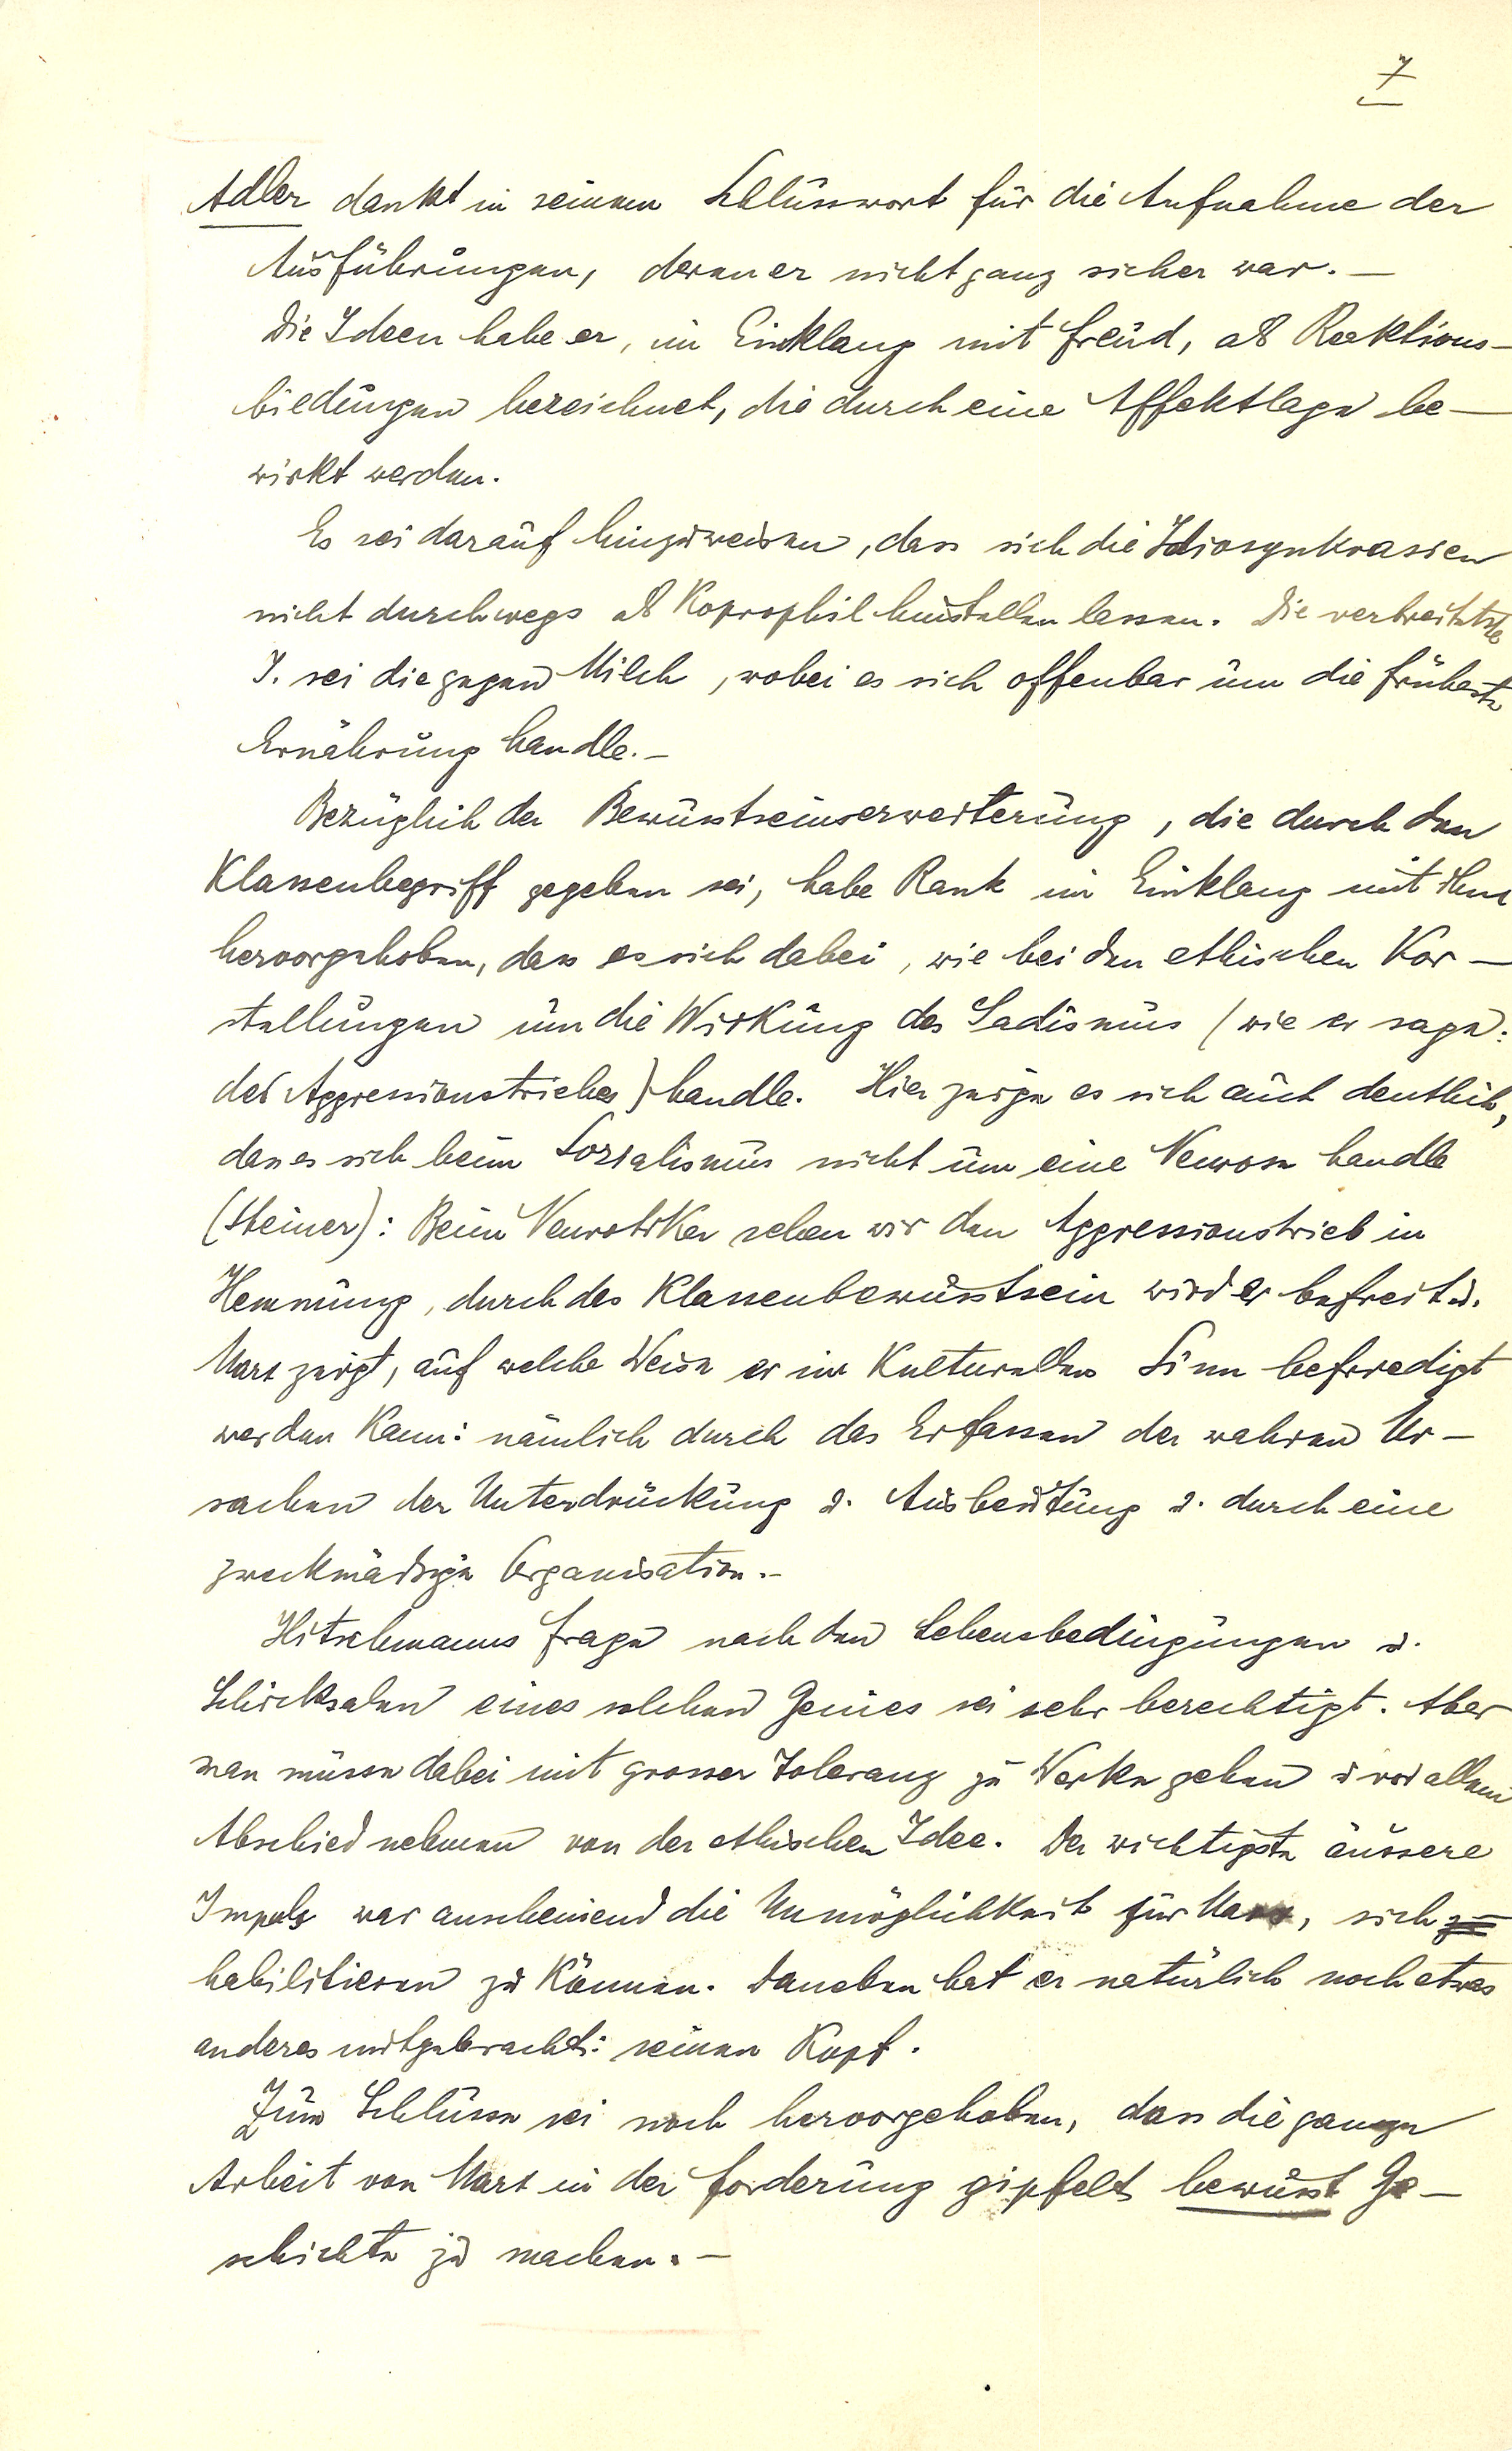 7
Adler dankt in seinem Schlusswort für die Aufnahme der
Ausführungen, deren er nicht ganz sicher war. —
Die Ideen habe er, im Einklang mit Freud, als Reaktions-
bildungen bezeichnet, die durch eine Affektlage be-
wirkt werden.
Es sei darauf hinzuweisen, dass sich die Idiosynkrasien
nicht durchwegs als Koprophil hinstellen lassen. Die verbreitetste
I. sei die gegen Milch, wobei es sich offenbar um die früheste
Ernährung handle. —
Bezüglich der Bewusstseinserweiterung, die durch den
Klassenbegriff gegeben sei, habe Rank im Einklang mit ihm
hervorgehoben, dass es sich dabei, wie bei den ethischen Vor-
stellungen um die Wirkung des Sadismus (wie er sage:
des Aggressionstriebes) handle. Hier zeige es sich auch deutlich,
dass es sich beim Sozialismus nicht um eine Neurose handle
(Steiner): Beim Neurotiker sehen wir den Aggressionstrieb in
Hemmung, durch das Klassenbewusstsein wird er befreit u.
Marx zeigt, auf welche Weise er im Kulturellen Sinn befriedigt
werden kann: nämlich durch das Erfassen der wahren Ur-
sachen der Unterdrückung u. Ausbeutung u. durch eine
zweckmäßige Organisation. —
Hitschmanns Frage nach den Lebensbedingungen u.
Schicksalen eines solchen Genies sei sehr berechtigt. Aber
man müsse dabei mit grosser Toleranz zu Werke gehen u vor allem
Abschied nehmen von der ethischen Idee. Der wichtigste äussere
Impuls war anscheinend die Unmöglichkeit für Marx, sich
habilitieren zu können. Daneben hat er natürlich noch etwas
anderes mitgebracht: seinen Kopf.
Zum Schlusse sei noch hervorgehoben, dass die ganze
Arbeit von Marx in der Forderung gipfelt bewusst Ge-
schichte zu machen. —